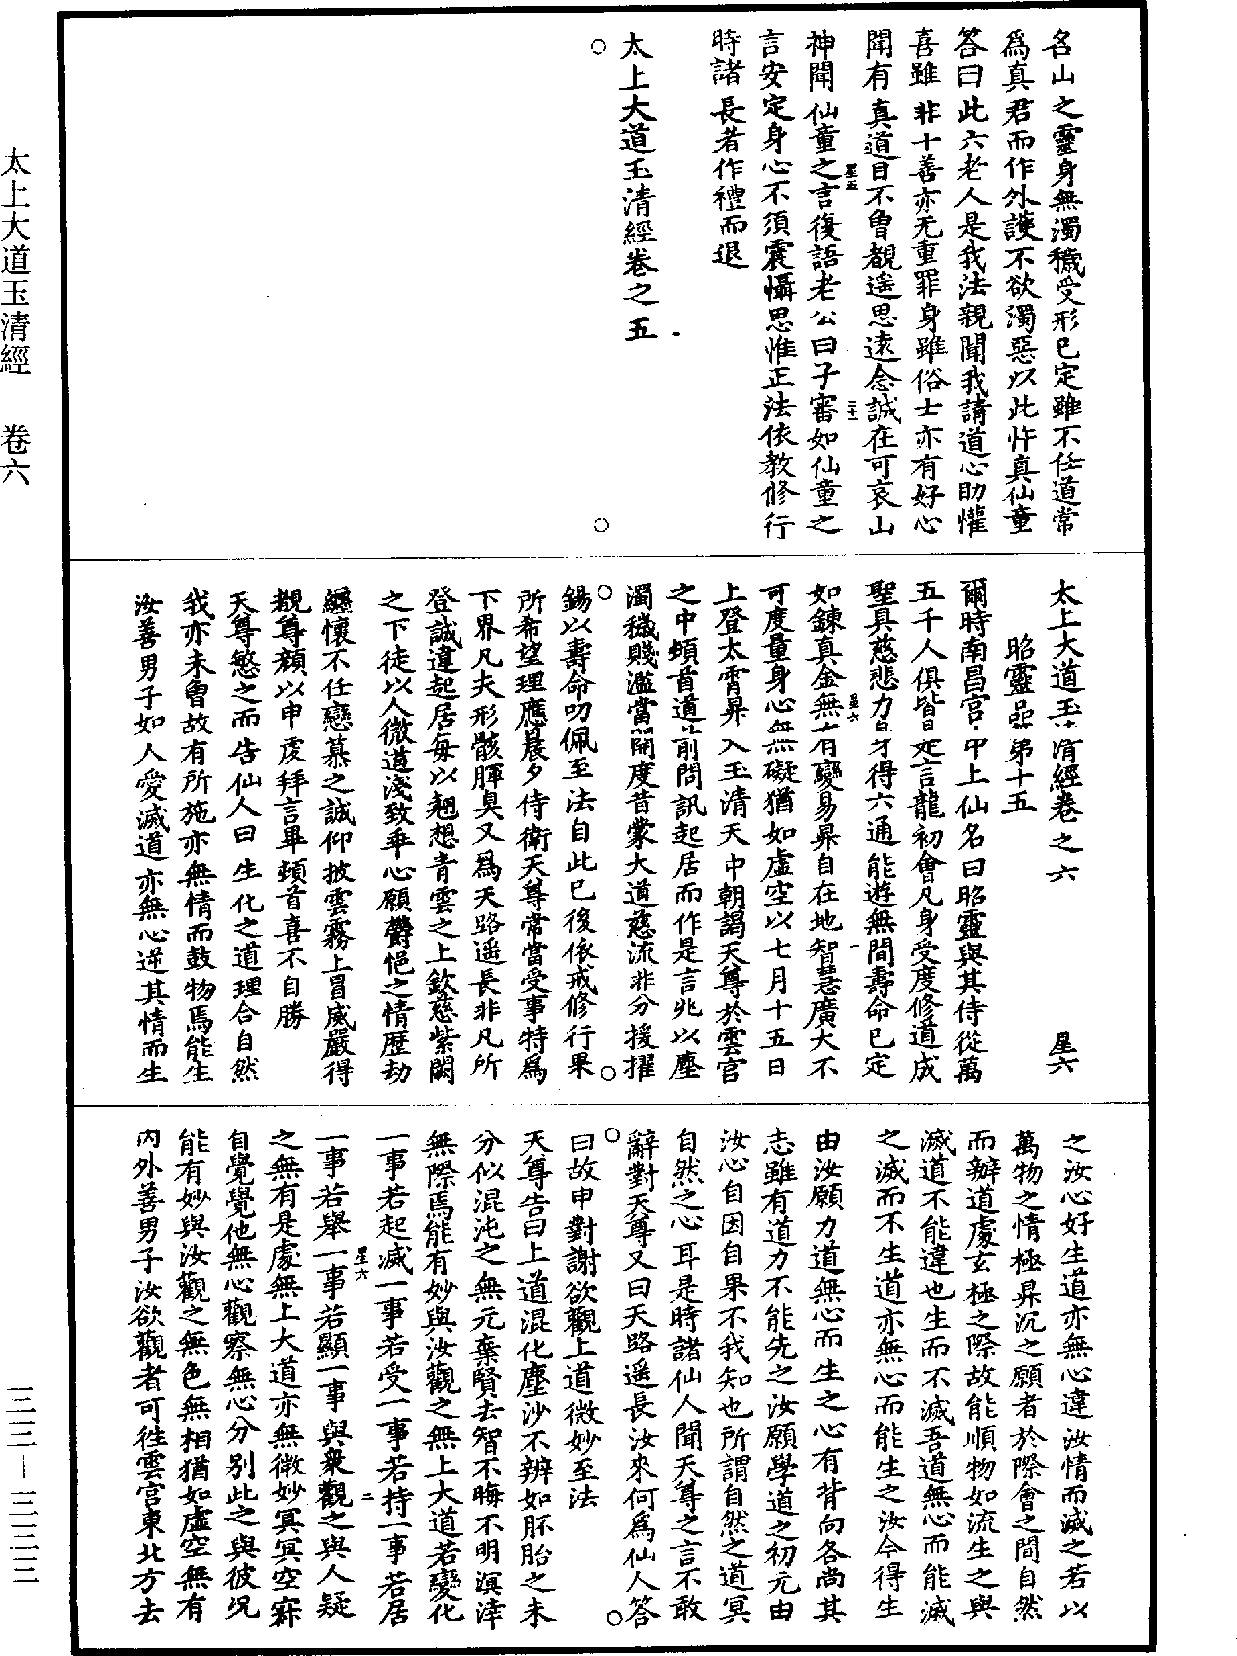 太上大道玉清經　卷六
三三－三三三
名山之靈身無濁穢受形已定雖不任道常
爲真君而作外護不欲濁惡以此忤真仙童
答曰此六老人是我法親聞我請道心助懽
喜雖非十善亦无重罪身雖俗士亦有好心
聞有真道目不曾覩遥思遠念誠在可哀山
神聞仙童之言復語老公曰子審如仙童之
言安定身心不須震懾思惟正法依教修行
時諸長者作禮而退
太上大道玉清經卷之五
星五
二十一
太上大道玉清經卷之六　星六
昭靈品第十五
爾時南昌宮中上仙名曰昭靈與其侍從萬
五千人俱皆是延言龍初會凡身受度修道成
聖具慈悲力身才得六通能遊無間壽命已定
如鍊真金無有變易昇自在地智慧廣大不
可度量身心無礙猶如虛空以七月十五日
上登太霄昇入玉清天中朝謁天尊於雲官
之中頓首道前問訊起居而作是言兆以塵
濁穢賤濫當開度昔蒙大道慈流非分援擢
錫以壽命叨佩至法自此已後依戒修行果
所希望理應晨夕侍衛天尊常當受事特爲
下界凡夫形骸腪臭又爲天路遥長非凡所
登誠違起居每以翹想青雲之上欽慈紫闕
之下徒以人微道淺致乖心願欝悒之情歷劫
纏懷不任戀慕之誠仰披雲霧上冒威嚴得
覩尊顏以申虔拜言畢頓首喜不自勝
天尊慜之而告仙人曰生化之道理合自然
我亦未曾故有所施亦無情而鼓物焉能生
汝善男子如人愛滅道亦無心逆其情而生
星六
一
之汝心好生道亦無心違汝情而滅之若以
萬物之情極昇沉之願者於際會之間自然
而辦道處玄極之際故能順物如流生之與
滅道不能違也生而不滅吾道無心而能滅
之滅而不生道亦無心而能生之汝今得生
由汝願力道無心而生之心有背向各尚其
志雖有道力不能先之汝願學道之初元由
汝心自因自果不我知也所謂自然之道冥
自然之心耳是時諸仙人聞天尊之言不敢
辭對天尊又曰天路遥長汝來何爲仙人答
曰故申對謝欲觀上道微妙至法
天尊告曰上道混化塵沙不辨如胚胎之未
分似混沌之無元棄賢去智不晦不明溟涬
無際焉能有妙與汝觀之無上大道若變化
一事若起滅一事若受一事若持一事若居
一事若舉一事若顯一事與衆觀之與人疑
之無有是處無上大道亦無微妙冥冥空寂
自覺覺他無心觀察無心分別此之與彼况
能有妙與汝觀之無色無相猶如虛空無有
內外善男子汝欲觀者可徃雲宫東北方去
星六
二